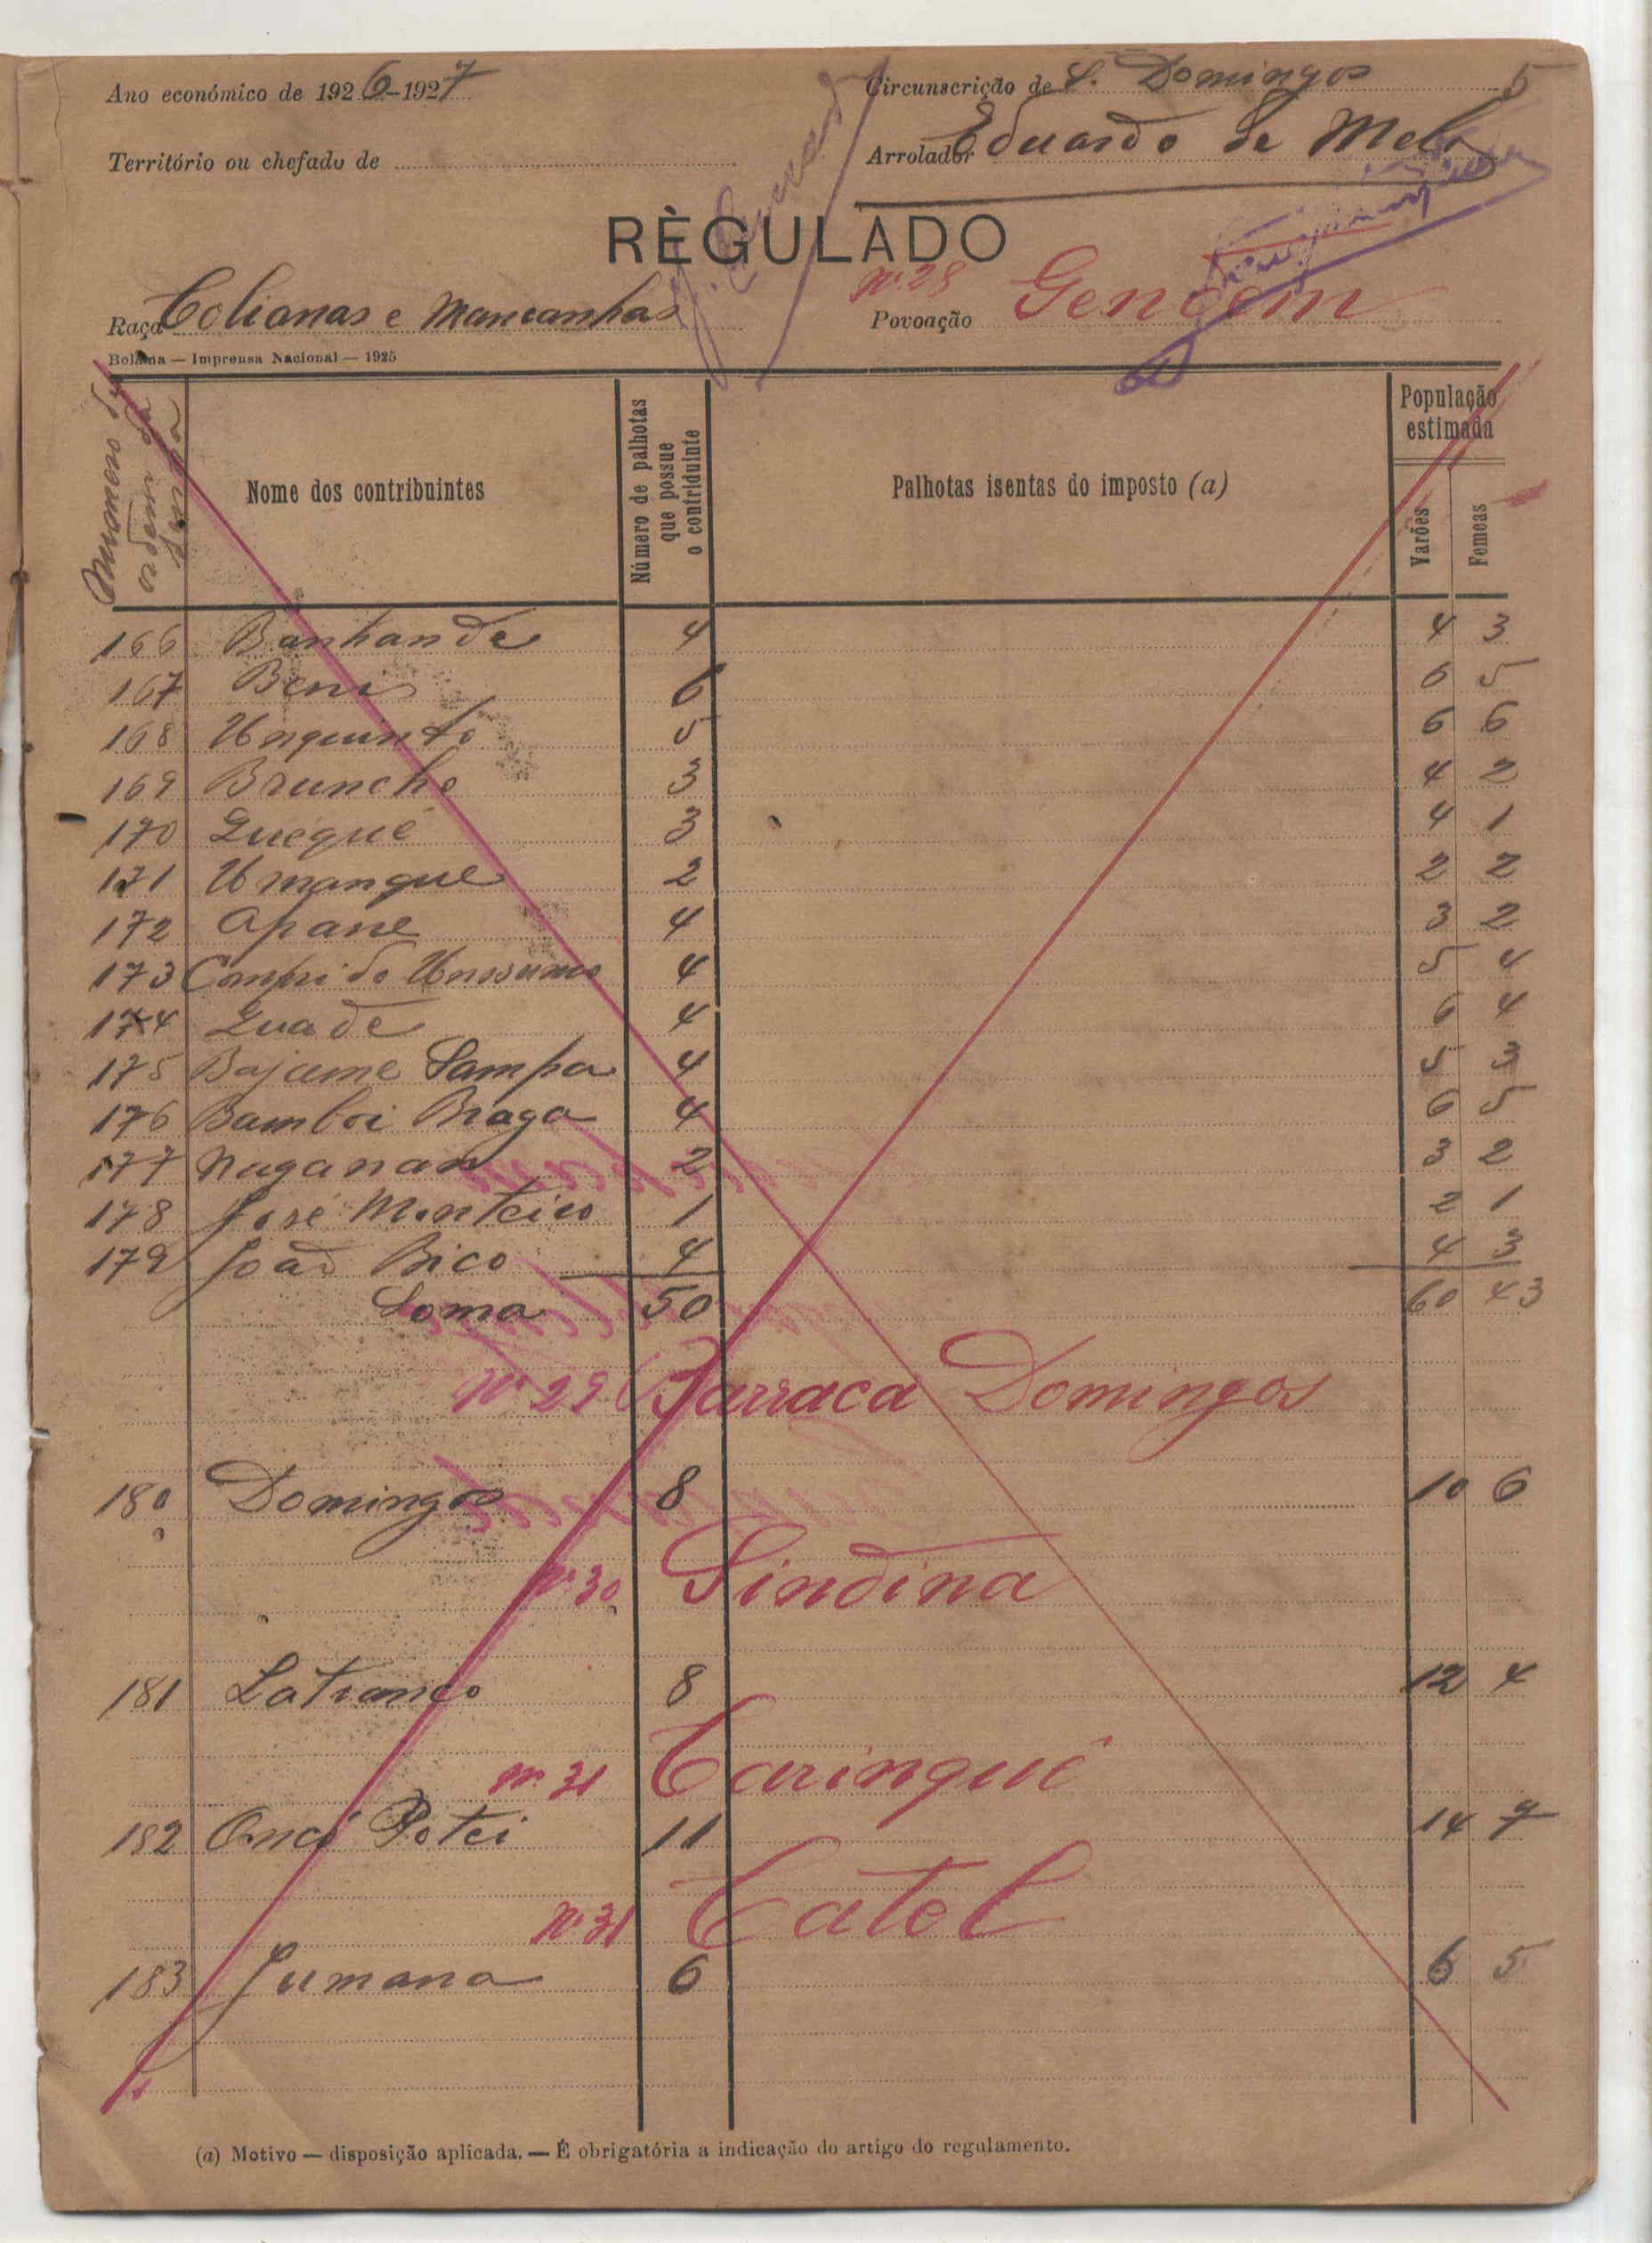 Ano económico de 1926-1927 Circunscrição de S. Domingos 5
Território ou chefado de Arrolador Eduardo de Melo
RÈGULADO
Raça Colianas e Mancanhas Nº 28 Povoação Gençem
Bolama — Imprensa Nacional — 1925
Numeros de ordem da
Nome dos contribuintes
Número de palhotas que possue o contriduinte
Palhotas isentas do imposto (a)
População estimada
Varões Femeas
166 Banhande 4 4 3
167 Beni 6 6 5
168 Unquinto 5 6 6
169 Brunche 3 4 2
170 Quéqué 3 4 1
171 Umangue 2 2 2
172 Apane 4 3 2
173 Comprido 4 5 4
174 Quade 4 6 4
175 Bajame Sampa 4 5 3
176 Bamboi Braga 4 6 5
177 Naganan 2 3 2
178 José Monteiro 1 2 1
179 João Bico 4 4 3
Soma 50 60 43
Nº 29 Barraca Domingos
180 Domingos 8 10 6
Nº 30 Sindina
181 Latranço 8 12 4
Nº 31 Caringué
182 Onçó Potei 11 14 7
Nº 31 Catel
183 Jumana 6 6 5
(a) Motivo — disposição aplicada. — É obrigatória a indicação do artigo do regulamento.